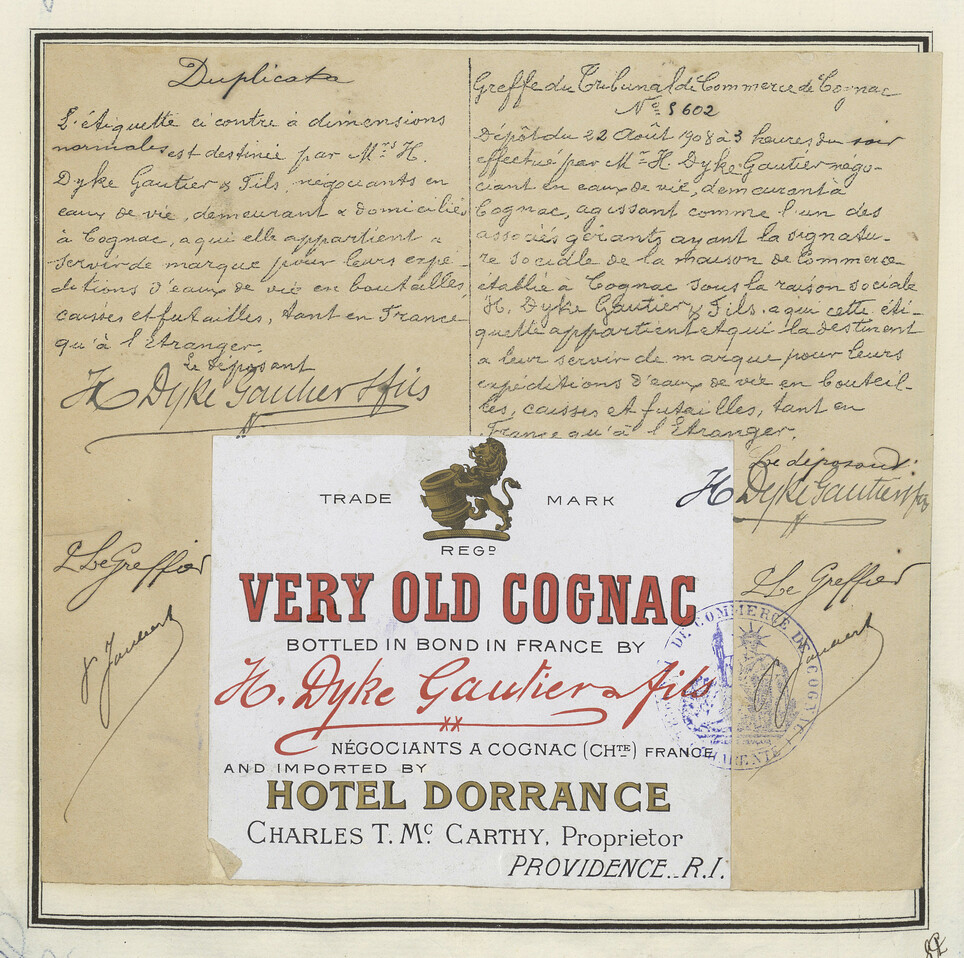 Duplicata
L'étiquette ci contre à dimensions
normales est destinée par Mrs H.
Dyke Gautier & Fils, négociants en
eaux de vie, demeurant & domiciliés
à Cognac, a qui elle appartient a
servir de marque pour leurs expé-
ditions d'eaux de vie en bouteilles,
caisses et futailles, tant en France
qu'à l'Etranger.
Le déposant
H Dyke Gautier & fils
P Le Greffier
Greffe du Tribunal de Commerce de Cognac
No 5602
Dépôt du 22 Août 1908 à 3 heures du soir
effectué par Mr H. Dyke Gautier négo-
ciant en eaux de vie, demeurant à
Cognac, agissant comme l'un des
associés gérants ayant la signatu-
re sociale de la maison de Commerce
établie à Cognac sous la raison sociale
H. Dyke Gautier & Fils. a qui cette éti-
quette appartient et qui la destinent
a leur servir de marque pour leurs
expéditions d'eaux de vie en bouteil-
les, caisses et futailles, tant en
France qu'à l'Etranger.
Le déposant
H Dyke Gautier & fils
P Le Greffier
TRADE MARK
REGD
VERY OLD COGNAC
BOTTLED IN BOND IN FRANCE BY
H. Dyke Gautier & fils
NÉGOCIANTS A COGNAC (CHTE) FRANCE
AND IMPORTED BY
HOTEL DORRANCE
CHARLES T. Mc CARTHY, Proprietor
PROVIDENCE.. R.I.
DE COMMERCE DE COGNAC
CHARENTE